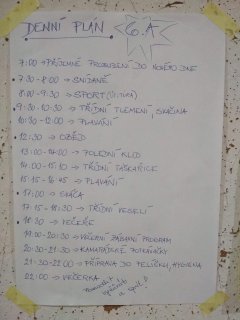 DENNÍ PLÁN 6.A
7:00 → PŘÍJEMNÉ PROBUZENÍ DO NOVÉHO DNE
7:30 - 8:00 → SNÍDANĚ
8:00 - 9:30 → SPORT
9:30 - 10:30 → TŘÍDNÍ TLEMENÍ, SVAČINA
10:30 - 12:00 → PLAVÁNÍ
12:30 → OBĚD
13:00 - 14:00 → POLEDNÍ KLID
14:00 - 15:10 → TŘÍDNÍ TAŠKAŘICE
15:15 - 16:45 → PLAVÁNÍ
17:00 → SVAČA
17:15 - 18:30 → TŘÍDNÍ VESELÍ
18:30 → VEČEŘE
19:00 - 20:30 → VEČERNÍ ZÁBAVNÍ PROGRAM
20:30 - 21:30 → KAMARÁDSKÉ
21:30 - 22:00 → PŘÍPRAVA DO PELÍŠKU, HYGIENA
22:00 → VEČERKA